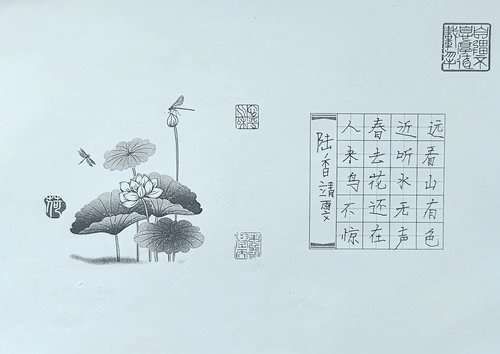 远看山有色
近听水无声
春去花还在
人来鸟不惊
陆香靖雯
荷